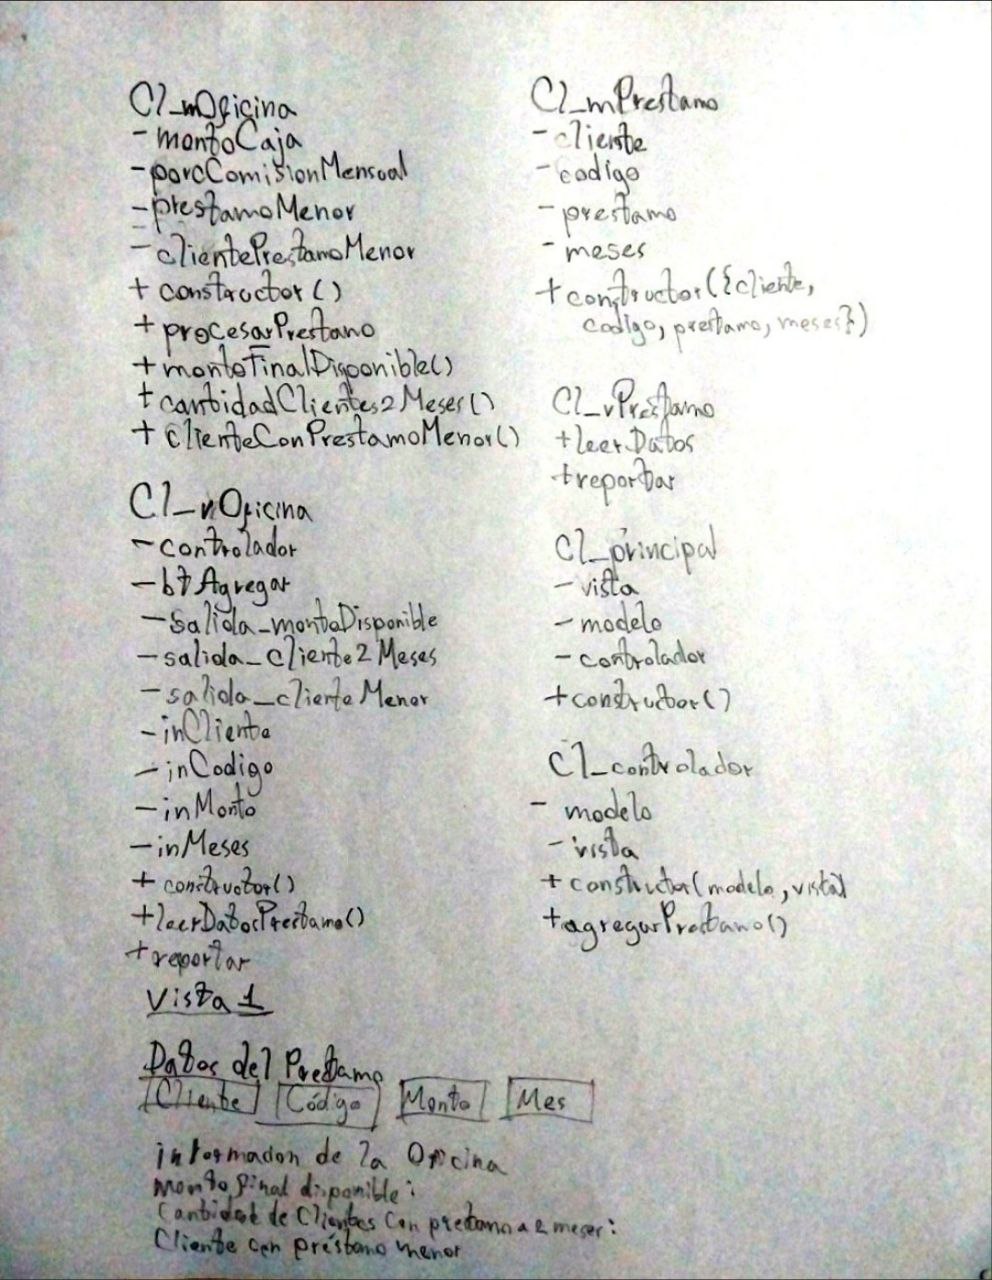 Cl_mOficina
- montoCaja
- porcComisionMensual
- prestamoMenor
- clientePrestamoMenor
+ constructor()
+ procesarPrestamo
+ montoFinalDisponible()
+ cantidadClientes2Meses()
+ clienteConPrestamoMenor()
Cl_vOficina
- controlador
- btAgregar
- salida_montoDisponible
- salida_cliente2Meses
- salida_clienteMenor
- inCliente
- inCodigo
- inMonto
- inMeses
+ constructor()
+ leerDatosPrestamo()
+ reportar
Cl_mPrestamo
- cliente
- codigo
- prestamo
- meses
+ constructor({cliente,
codigo, prestamo, meses})
Cl_vPrestamo
+ leerDatos
+ reportar
Cl_principal
- vista
- modelo
- controlador
+ constructor()
Cl_controlador
- modelo
- vista
+ constructor(modelo, vista)
+ agregarPrestamo()
Vista 1
Datos del Prestamo
Cliente Código Monto Mes
informacion de la Oficina
Monto final disponible:
Cantidad de Clientes Con prestamo a 2 meses:
Cliente con préstamo menor